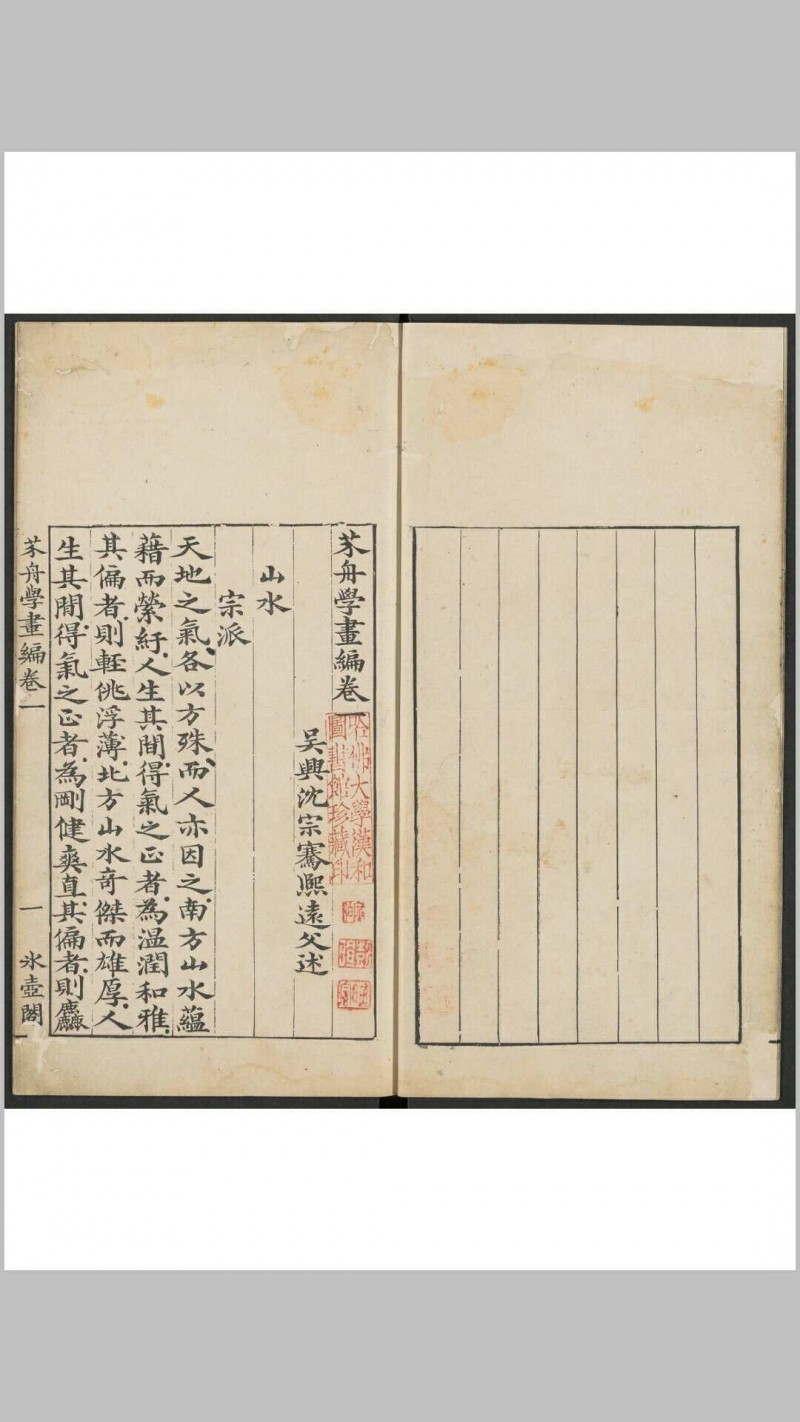 芥舟學畫編卷一
吳興沈宗騫熙遠父述
山水
宗派
天地之氣、各以方殊、而人亦因之。南方山水蘊
藉而縈紆。人生其間。得氣之正者。為温潤和雅。
其偏者。則輕佻浮薄。北方山水奇傑而雄厚。人
生其間。得氣之正者。為剛健爽直。其偏者。則麤
芥舟學畫編卷一
一
冰壺閣
哈佛大學漢和
圖書館珍藏印